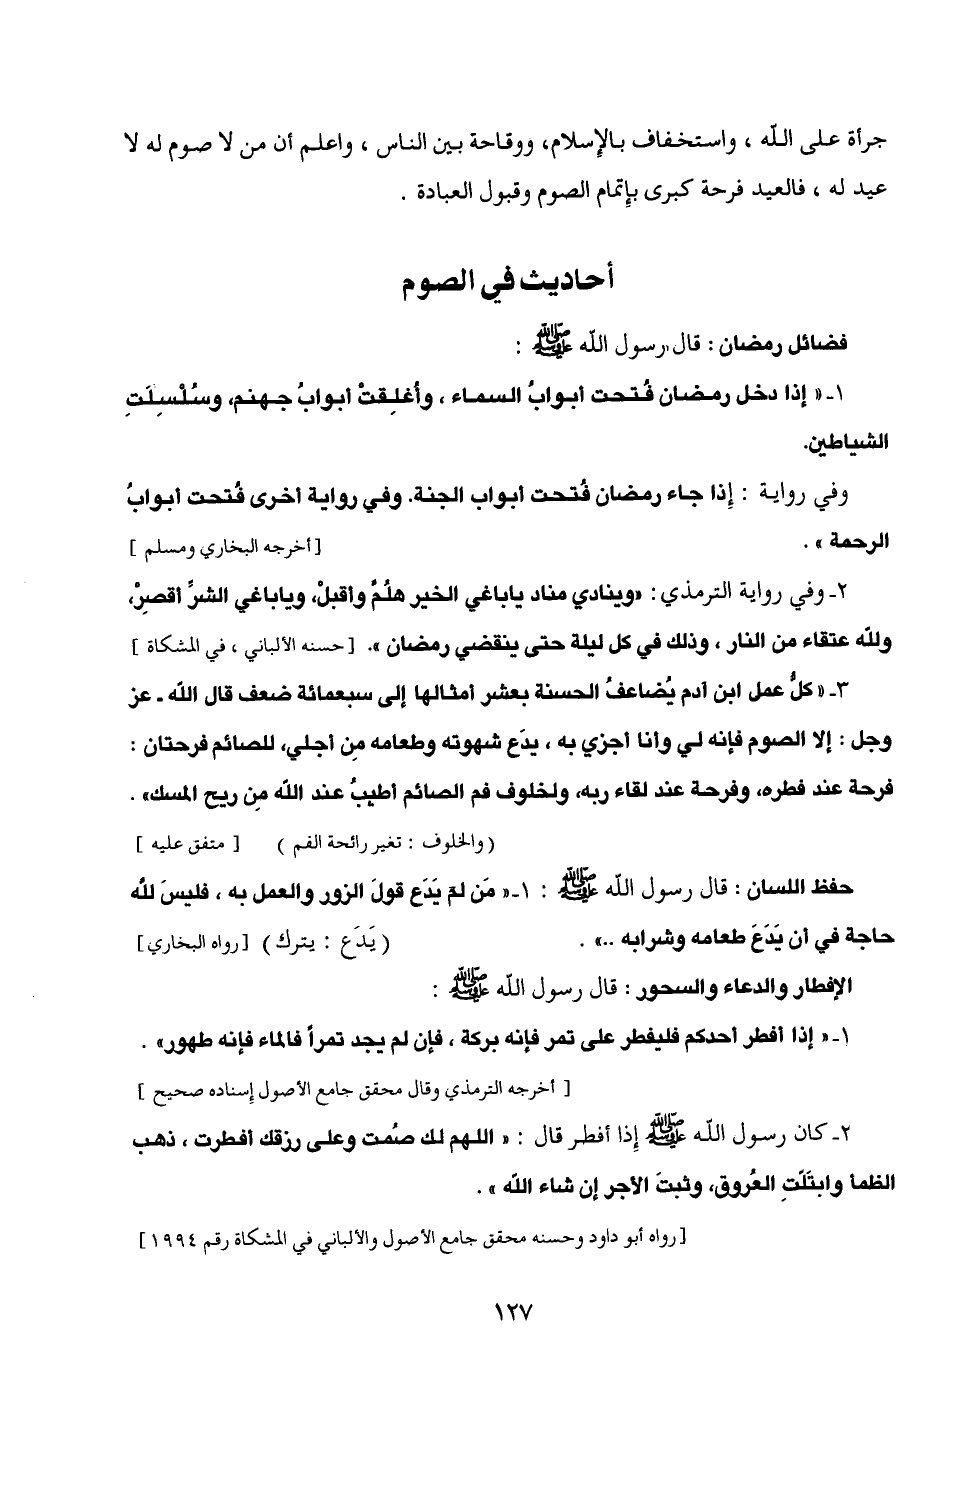 جرأة على الله ، واستخفاف بالإسلام، ووقاحة بين الناس ، واعلم أن من لا صوم له لا
عيد له ، فالعيد فرحة كبرى بإتمام الصوم وقبول العبادة .
أحاديث في الصوم
فضائل رمضان : قال رسول الله ﷺ :
١ـ « إذا دخل رمضان فُتحت أبوابُ السماء ، وأُغلِقتْ أبوابُ جهنم، وسُلْسِلَتِ
الشياطين.
وفي رواية : إذا جاء رمضان فُتحت أبواب الجنة. وفي رواية أخرى فُتحت أبوابُ
الرحمة » . [أخرجه البخاري ومسلم ]
٢ـ وفي رواية الترمذي : «وينادي مناد ياباغي الخير هلُمَّ وأقبلْ، وياباغي الشرِّ أقصرْ،
ولله عتقاء من النار ، وذلك في كل ليلة حتى ينقضي رمضان ». [حسنه الألباني ، في المشكاة ]
٣ـ «كلُّ عمل ابن آدم يُضاعفُ الحسنة بعشر أمثالها إلى سبعمائة ضعف قال الله ـ عز
وجل : إلا الصوم فإنه لي وأنا أجزي به ، يدَع شهوته وطعامه مِن أجلي، للصائم فرحتان :
فرحة عند فطره، وفرحة عند لقاء ربه، ولخلوف فم الصائم أطيبُ عند الله مِن ريح المسك» .
(والخلوف : تغير رائحة الفم ) [ متفق عليه ]
حفظ اللسان : قال رسول الله ﷺ : ١ـ « مَن لمْ يَدَع قولَ الزور والعمل به ، فليسَ لله
حاجة في أن يَدَعَ طعامه وشرابه ..» . (يَدَع : يترك) [رواه البخاري]
الإفطار والدعاء والسحور : قال رسول الله ﷺ :
١ـ « إذا أفطر أحدكم فليفطر على تمر فإنه بركة ، فإن لم يجد تمراً فالماء فإنه طهور» .
[ أخرجه الترمذي وقال محقق جامع الأصول إسناده صحيح ]
٢ـ كان رسول الله ﷺ إذا أفطر قال : « اللهم لك صُمت وعلى رزقك أفطرت ، ذهب
الظمأ وابتَلَّتِ العُروق، وثبتَ الأجر إن شاء الله » .
[رواه أبو داود وحسنه محقق جامع الأصول والألباني في المشكاة رقم ١٩٩٤]
١٢٧